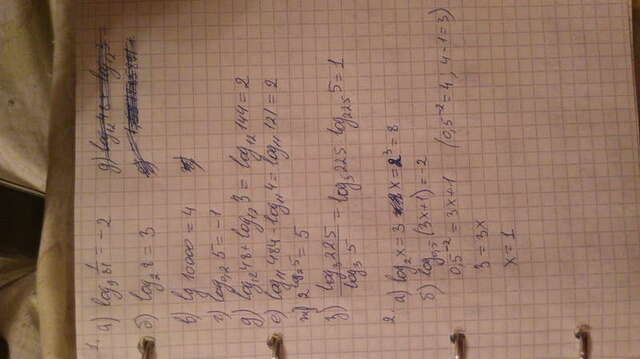 1. а) log₉ 1/81 = -2
д) log₁₂48 + log₁₂3 =
б) log₂8 = 3
в) lg 10000 = 4
г) log₀,₂ 5 = -1
д) log₁₂48 + log₁₂3 = log₁₂144 = 2
е) log₁₁484 - log₁₁4 = log₁₁121 = 2
ж) 2^log₂5 = 5
з) log₃225 / log₃5 = log₅225 log₂₂₅5 = 1
2. а) log₂x = 3 x = 2³ = 8
б) log₀,₅(3x+1) = -2
0,5⁻² = 3x+1 (0,5⁻² = 4; 4-1=3)
3 = 3x
x = 1